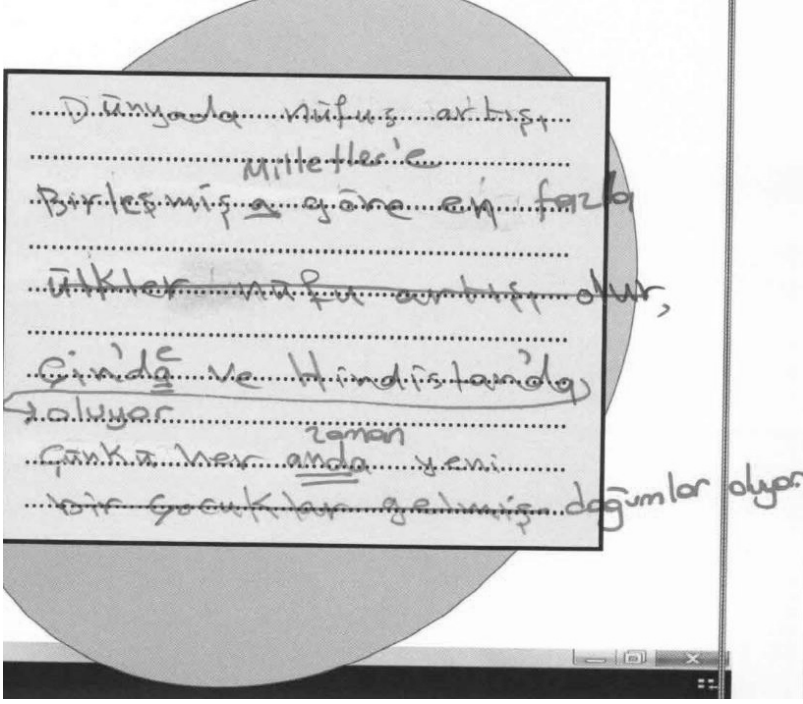 Dünyada nüfuş artışı
Milletler'e
Birleşmiş a göre en fazla
ülkler nüfu artışı olur,
Çin'da e ve Hindistan'da
oluyor
zaman
Çünkü her anda yeni
bir çocuklar gelmiş. doğumlar oluyor